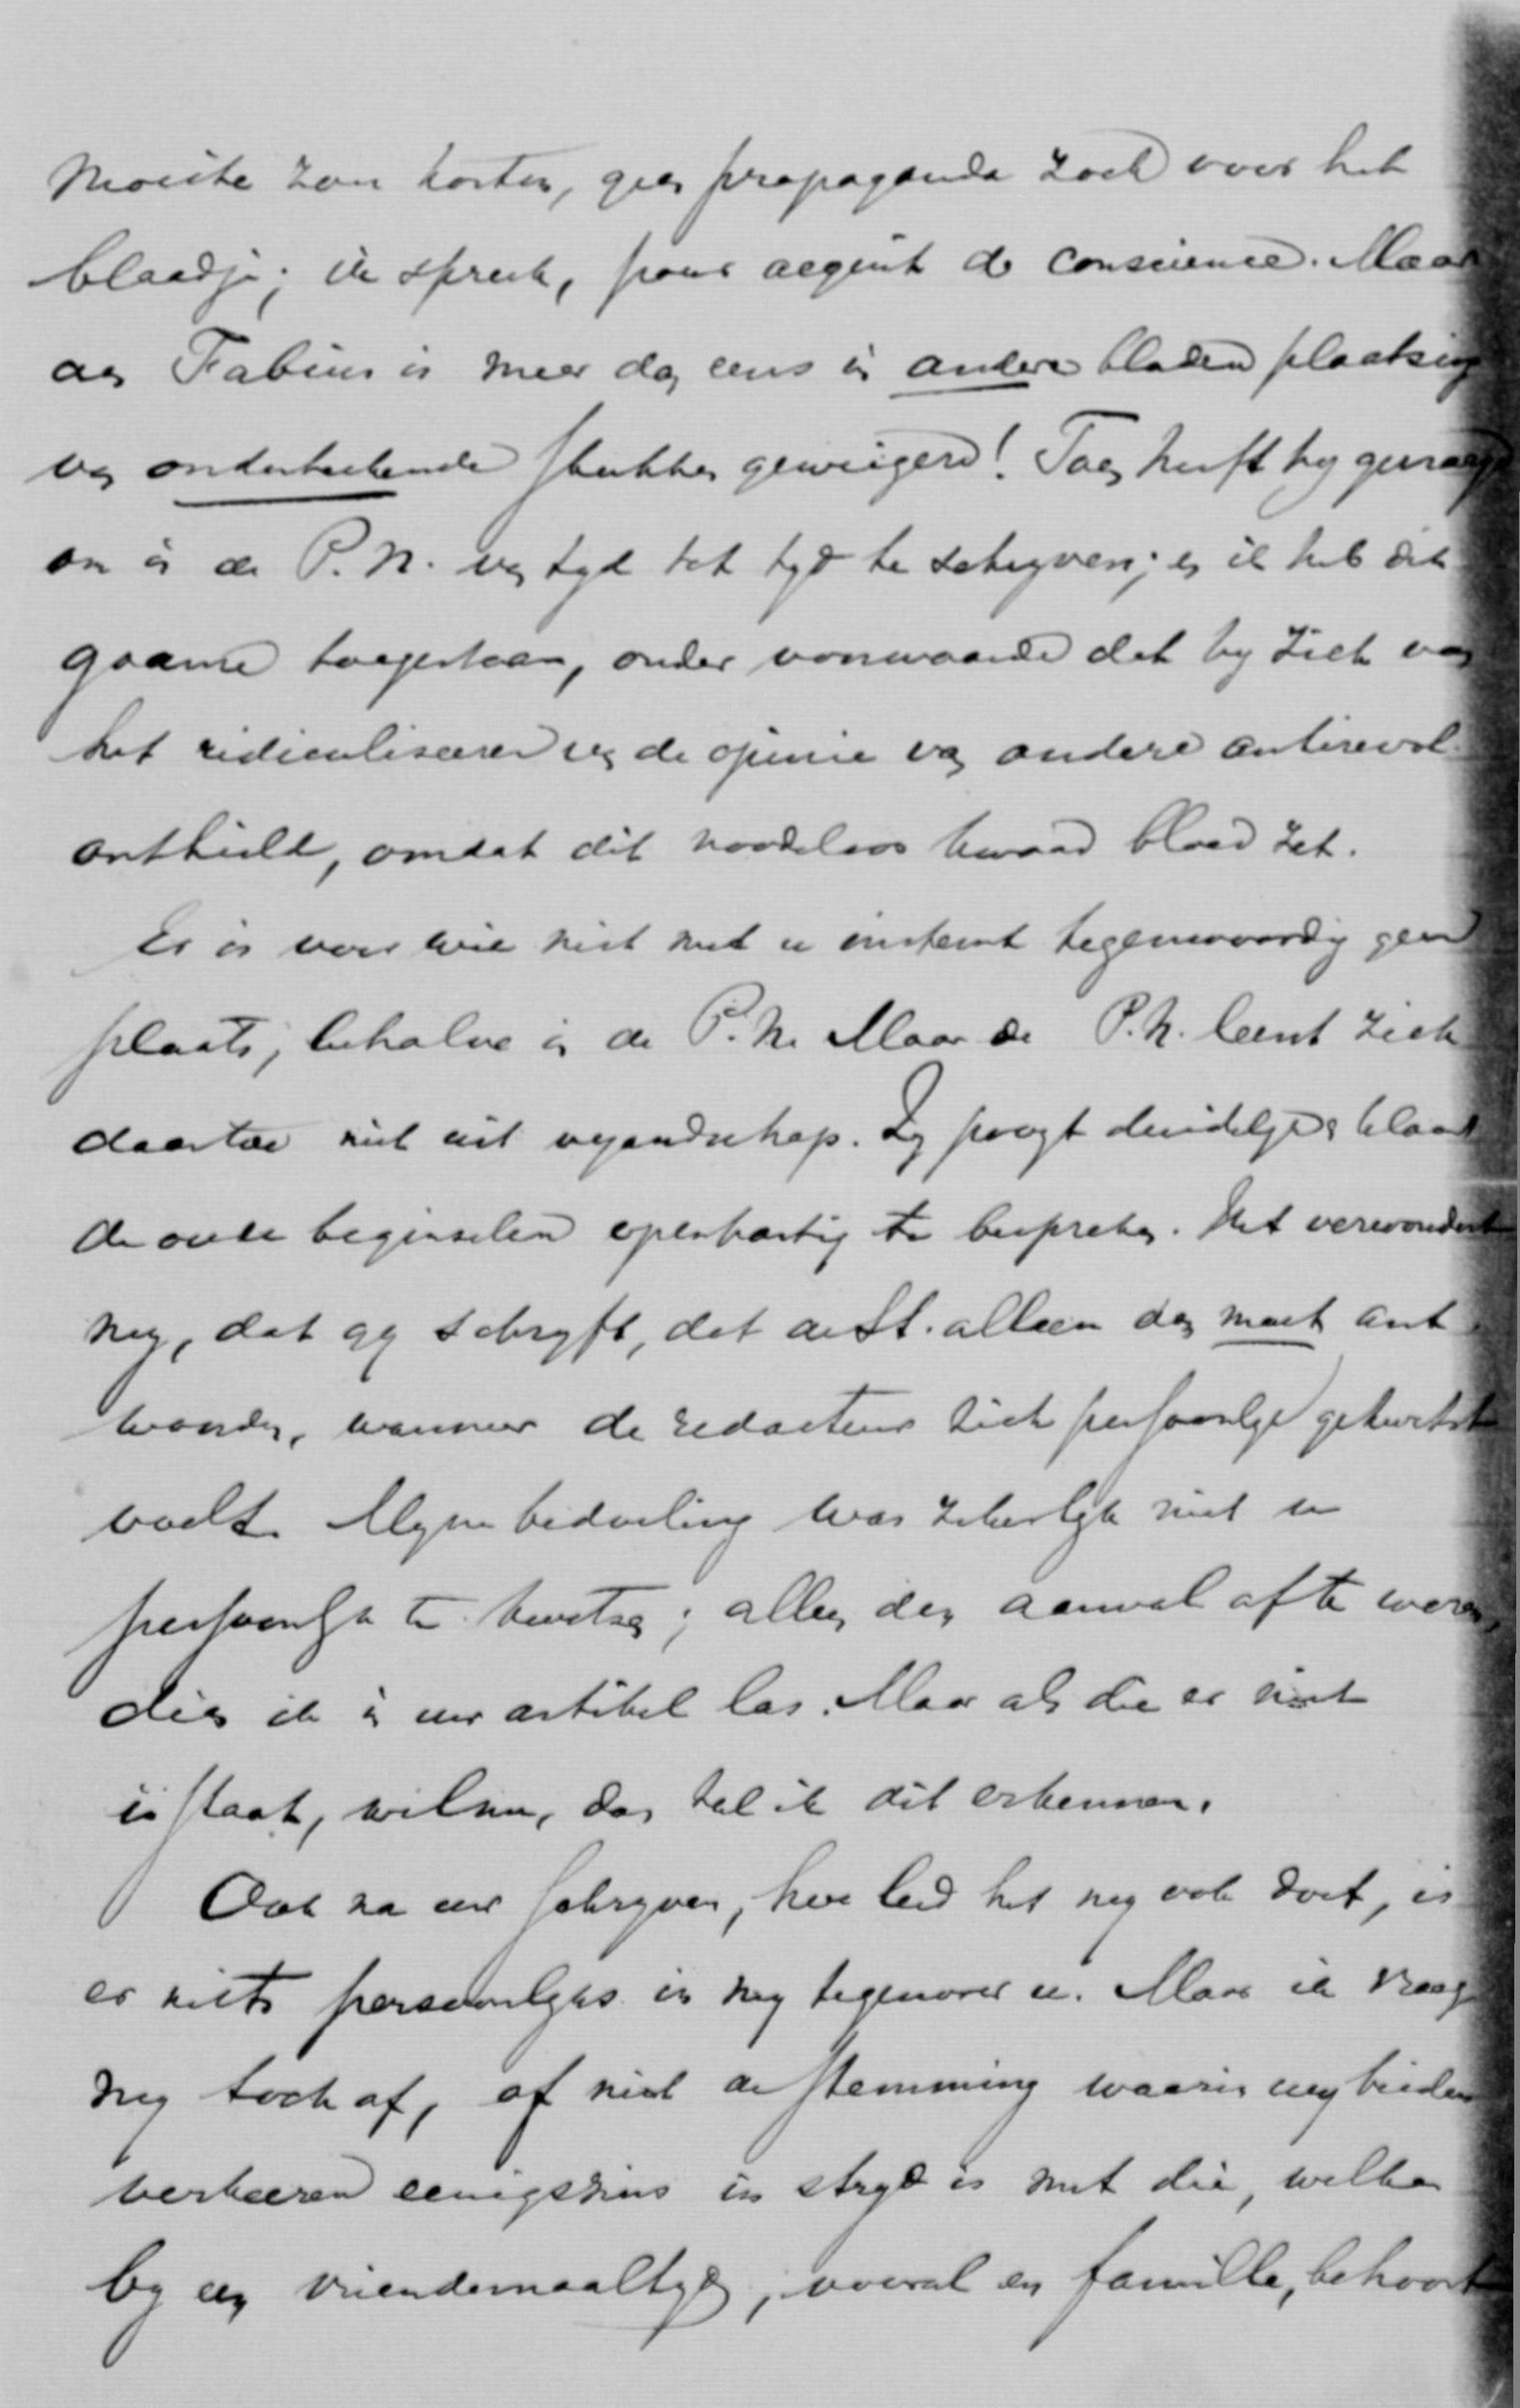 moeite zou kosten, geen propaganda zoek voor het
blaadje; ik spreek, pour acquit de conscience. Maar
aan Fabius is meer dan eens in andere bladen plaatsing
van onderteekende stukken geweigerd! Toen heeft hy gevraagd
om in de P.N. van tyd tot tyd te schryven; en ik heb dit
gaarne toegestaan, onder voorwaarde dat hy zich van
het ridiculiseeren van de opinie van andere antirevol.
onthield, omdat dit noodeloos kwaad bloed zet.
Er is voor wie niet met u instemt tegenwoordig geen
plaats, behalve in de P.N. Maar de P.N. leent zich
daartoe niet uit vyandschap. Zy poogt duidelyk en klaar
de oude beginselen openhartig te bespreken. Het verwondert
my, dat gy schryft, dat de St. alleen dan moet ant-
woorden, wanneer de redacteur zich persoonlyk gekwetst
voelt. Myne bedoeling was zekerlyk niet u
persoonlyk te kwetsen; alleen den aanval af te weren,
dien ik in uw artikel las. Maar als die er niet
in staat, welnu, dan zal ik dit erkennen.
Ook na uw schryven, hoe leed het my ook doet, is
er niets persoonlyks in my tegenover u. Maar ik vraag
my toch af, of niet de stemming waarin wy beiden
verkeeren eenigszins in stryd is met die, welke
by een vriendenmaaltyd, vooral en famille, behoort